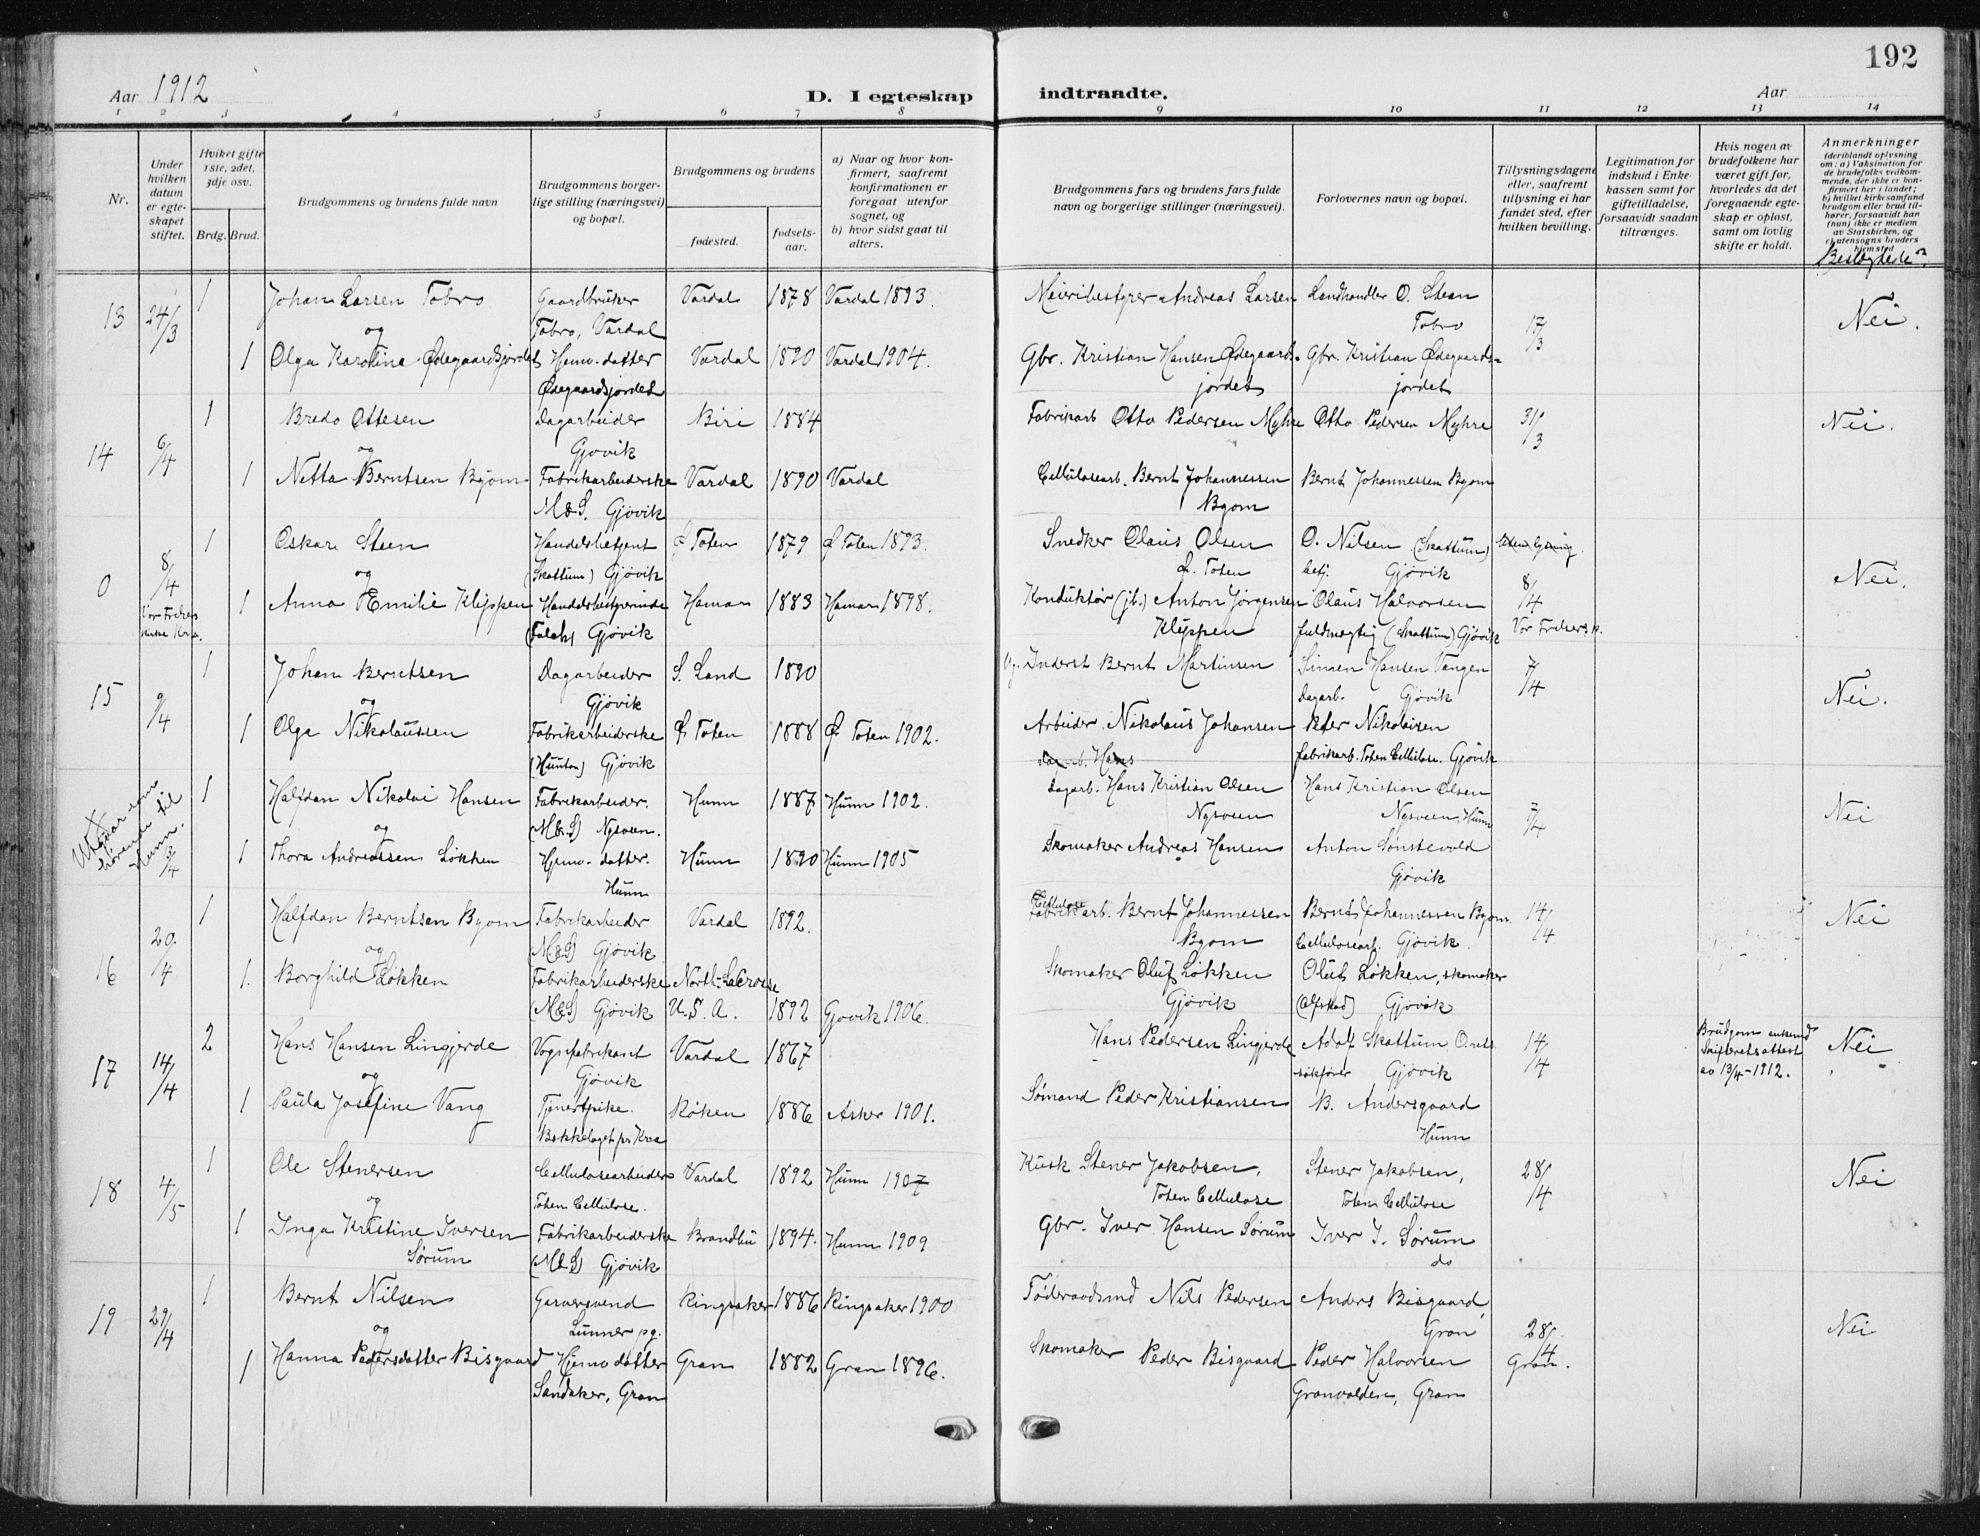 192
Aar 1912
D. I egteskap indtraadte.
Aar
1 2 3 4 5 6 7 8 9 10 11 12 13 14
Nr.
Under hvilken datum er egte-skapet stiftet.
Hviket gifte 1ste, 2det, 3dje osv.
Brdg. Brud.
Brudgommens og brudens fulde navn
Brudgommens borger-lige stilling (næringsvei) og bopæl.
Brudgommens og brudens
fødested.
fødsels-aar.
a) Naar og hvor kon-firmert, saafremt konfirmationen er foregaat utenfor sognet, og
b) hvor sidst gaat til alters.
Brudgommens fars og brudens fars fulde navn og borgerlige stillinger (næringsvei).
Forlovernes navn og bopæl.
Tillysningsdagene eller, saafremt tillysning ei har fundet sted, efter hvilken bevilling.
Legitimation for indskud i Enke-kassen samt for giftetilladelse, forsaavidt saadan tiltrænges.
Hvis nogen av brudefolkene har været gift før, hvorledes da det foregaaende egte-skap er opløst, samt om lovlig skifte er holdt.
Anmerkninger (deriblandt oplysning om: a) Vaksination for de brudefolks vedkom-mende, der ikke er kon-firmert her i landet; b) hvilket kirkesamfund brudgom eller brud til-hører, forsaavidt han (hun) ikke er medlem av Statskirken, og c) utensogns bruders hjemsted
Beslegtede?
13 24/3 1 Johan Larsen Tobro Gaardbruker Vardal 1878 Vardal 1893. Meieribestyrer Andreas Larsen Landhandler O. Steen 17/3 Nei.
og Tobro, Vardal Tobro
1 Olga Karoline Ødegaardsjordet Hjemv. datter Vardal 1890 Vardal 1904. Gbr. Kristian Hansen Ødegaards- Gbr. Kristian Ødegaards-
Ødegaardsjordet jordet jordet
14 6/4 1 Bredo Ottesen Dagarbeider Biri 1884 Fabrikarb Otto Pedersen Myhre Otto Pedersen Myhre 31/3 Nei.
og Gjøvik
1 Netta Berntsen Bjom Fabrikarbeiderske Vardal 1890 Vardal Cellulosearb. Bernt Johannessen Bernt Johannessen Byom
M&S. Gjøvik Byom
0 8/4 1 Oskar Steen Handelsbetjent Ø Toten 1879 Ø Toten 1893. Snedker Olaus Olsen O. Nilsen (Skattum) Uten lysning. Nei.
og (Skattum) Gjøvik Ø. Toten betj. Gjøvik 8/4
Vor Frelsers kirke Kra. 1 Anna Emilie Klyppen Handelsbestyrerinde Hamar 1883 Hamar 1898. Konduktør (jb.) Anton Jørgensen Olaus Halvorsen
(Falch) Gjøvik Klyppen fuldmægtig (Skattum) Gjøvik Vor Frelsersk.
15 9/4 1 Johan Berntsen Dagarbeider S. Land 1890 Inderst Bernt Martinsen Simen Hansen Vangen 7/4 Nei.
og Gjøvik Dagarb. Gjøvik
1 Olga Nikolaussen Fabrikarbeiderske Ø. Toten 1888 Ø Toten 1902. Arbeider Nikolaus Johansen Peter Nikolaisen
(Hunton) Gjøvik fabrikarb. Toten Cellulose. Gjøvik
Utgaar som hørende til Hunn. 1 Halfdan Nikolai Hansen Fabrikarbeider. Hunn 1887 Hunn 1902. Dagarb. Hans Kristian Olsen Hans Kristian Olsen 7/4 Nei
og (M&S) Nysveen. Nysveen Nysveen, Hunn
1 Thora Andreassen Løkken Hjemv. datter. Hunn 1890 Hunn 1905 Skomaker Andreas Hansen Anton Sønstevold
Hunn Gjøvik
16 20/4 1 Halfdan Berntsen Byom Fabrikarbeider Vardal 1892. Cellulosearb. Bernt Johannessen Bernt Johannessen Byom. 14/4 Nei
og (M&S) Gjøvik Byom Cellulosearb. Gjøvik.
1. Borghild Løkken Fabrikarbeiderske North-LaCrosse Skomaker Oluf Løkken Oluf Løkken, skomaker
(M&S) Gjøvik U.S.A. 1892 Gjøvik 1906. Gjøvik Gjøvik
17 14/4 2 Hans Hansen Lingjerde Vognfabrikant Vardal 1867 Hans Pedersen Lingjerde Adolf Skattum O.rets 14/4 Brudgom enkemd Skifteretsattest av 13/4-1912. Nei
og Gjøvik sakfører Gjøvik
1 Paula Josefine Vang Tjenertpike. Røken 1886 Asker 1901. Sømand Peder Kristiansen B. Andersgaard
Bækkelaget pr Kra Hunn
18 4/5 1 Ole Stenersen Cellulosearbeider Vardal 1892 Hunn 1907 Kusk Stener Jakobsen, Stener Jakobsen, 28/4 Nei
og Toten Cellulose. Toten Cellulose Toten Cellulose
1 Inga Kristine Iversen Fabrikarbeiderske Brandbu 1894. Hunn 1909 Gbr. Iver Hansen Sørum Iver I. Sørum
Sørum (M&S) Gjøvik do
19 29/4 1 Bernt Nilsen Garversvend Ringsaker 1886 Ringsaker 1900 Føderaadsmd Nils Pedersen Anders Bisgaard, Nei
og Lunner pg. Gran 28/4
1 Hanna Pedersdatter Bisgaard Hjemv datter Gran 1882 Gran 1896. Skomaker Peder Bisgaard Peder Halvorsen Gran.
Sandaker, Gran Granvolden, Gran